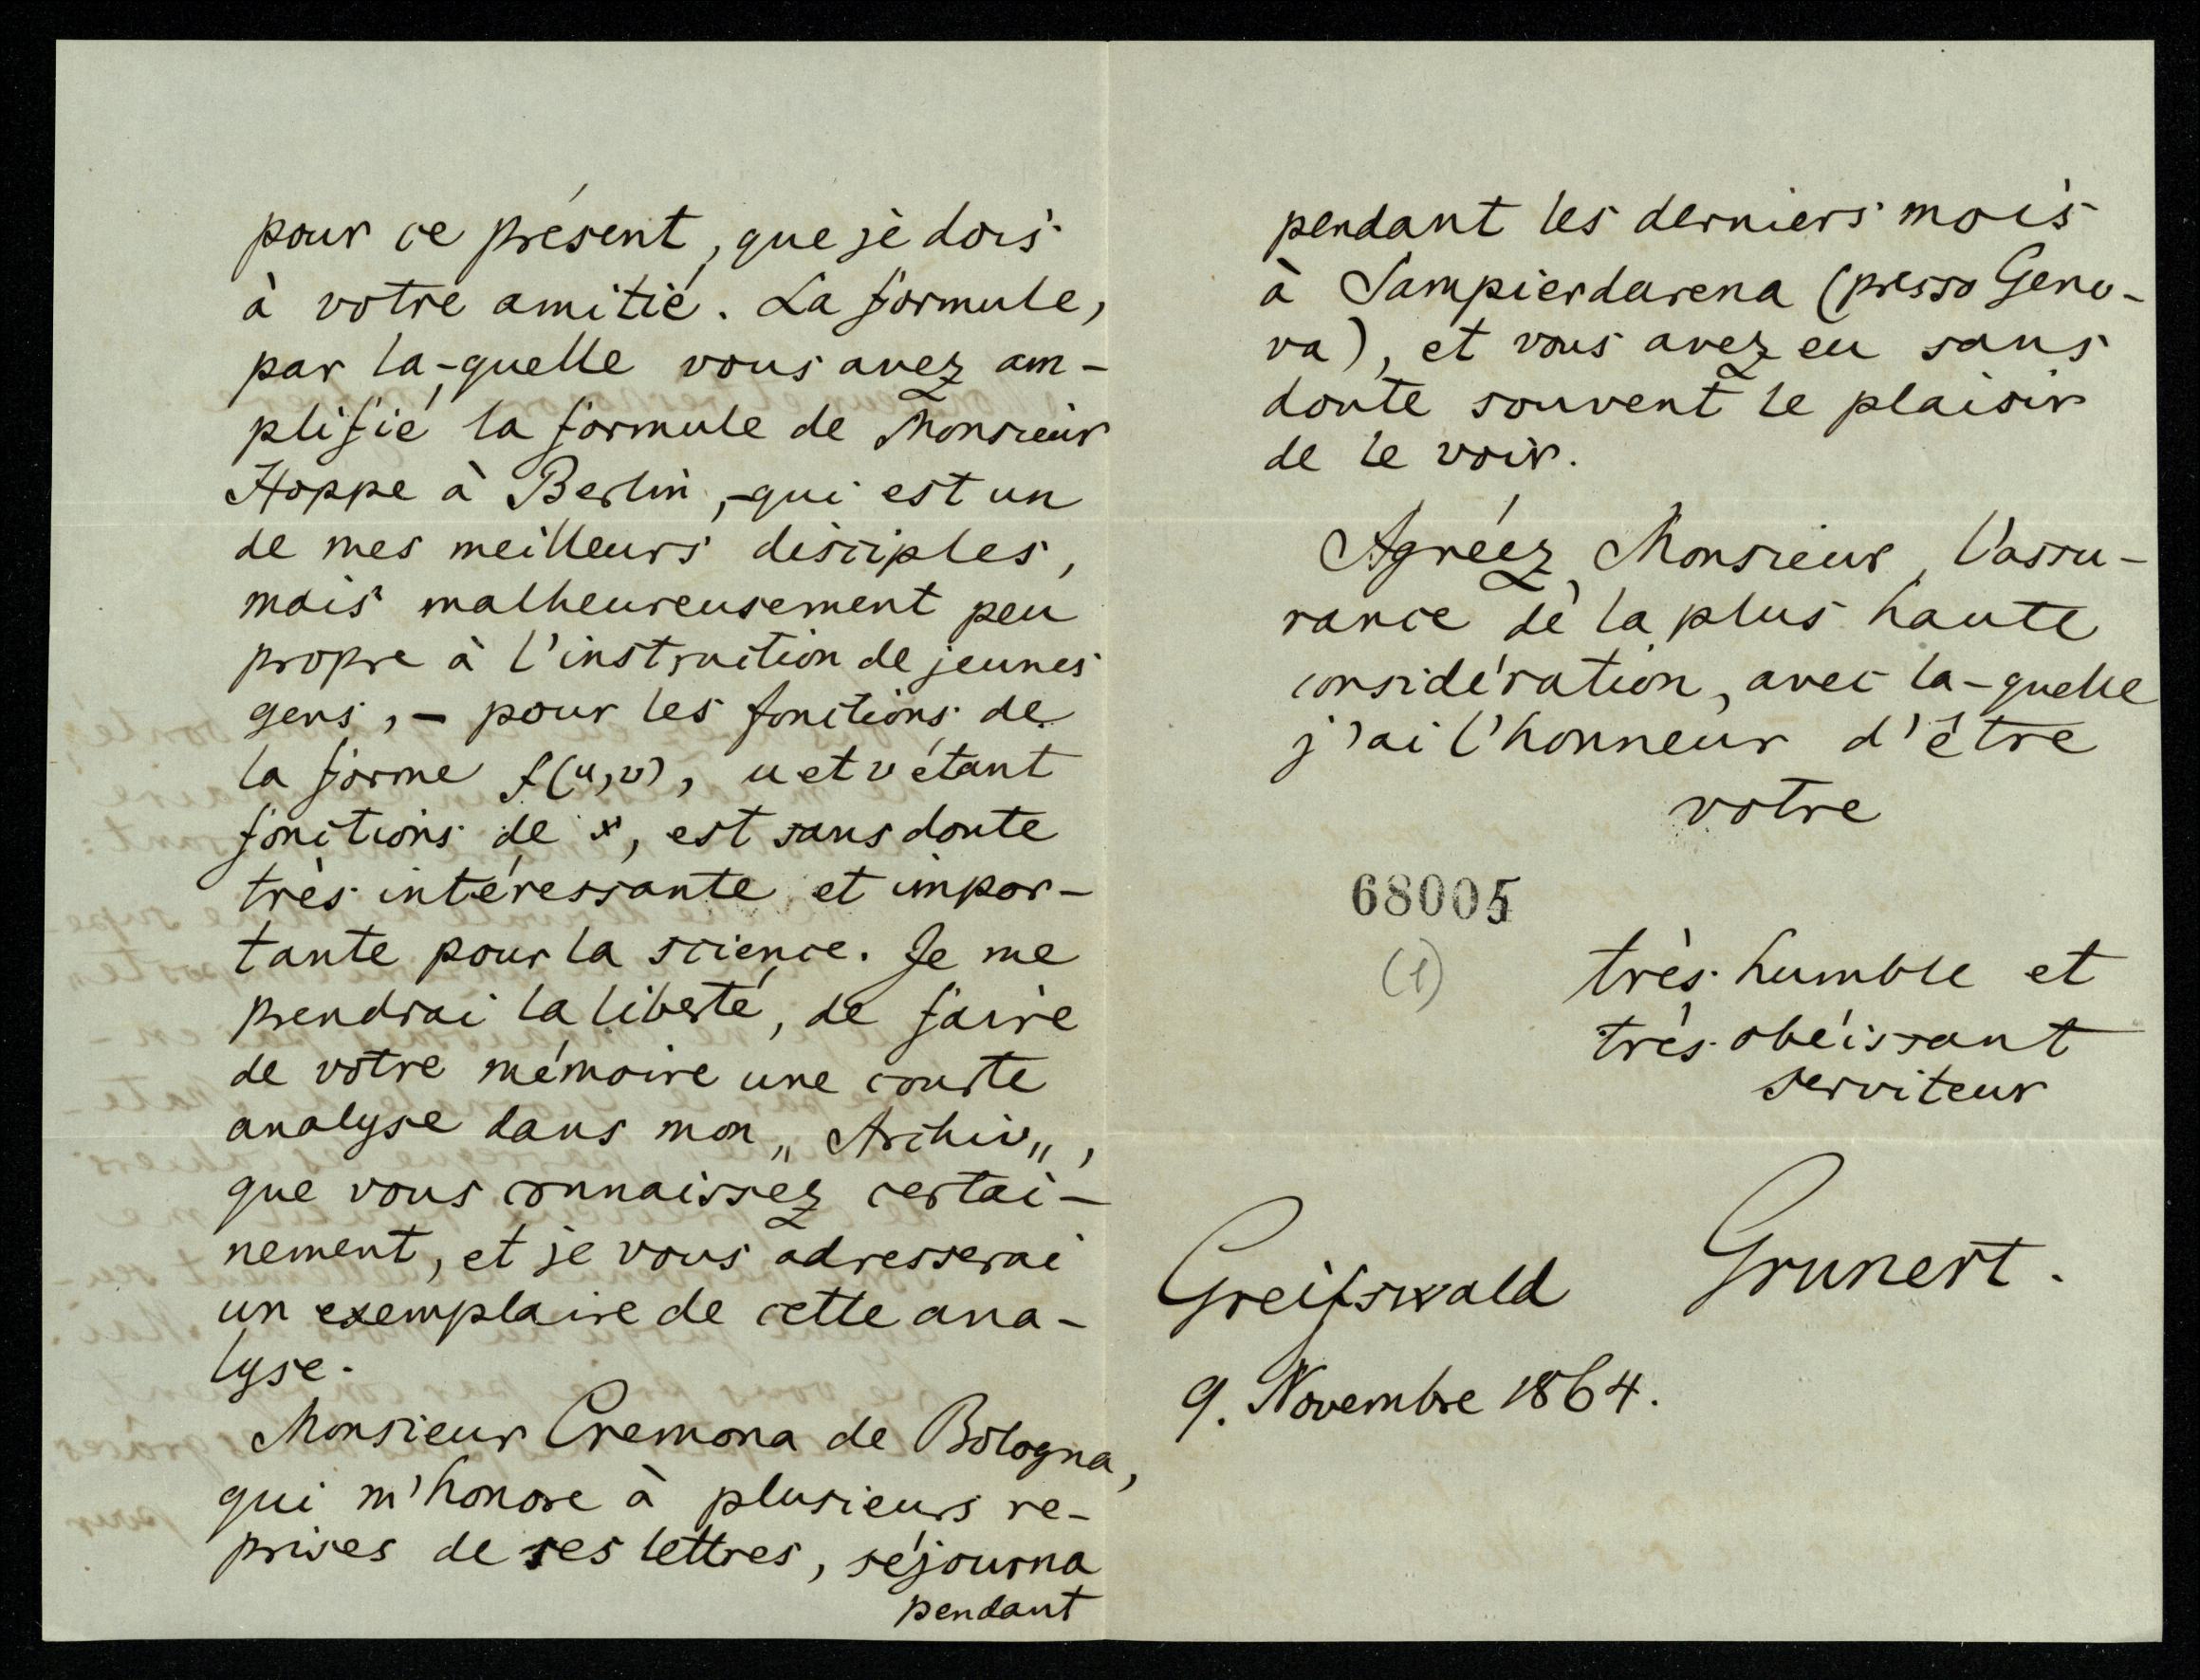 pour ce présent, que je dois
à votre amitié. La formule,
par la-quelle vous avez am-
plifié la formule de Monsieur
Hoppe à Berlin, - qui est un
de mes meilleurs disciples,
mais malheureusement peu
propre à l'instruction de jeunes
gens, - pour les fonctions de
la forme f(u,v), u et v étant
fonctions de x, est sans doute
très intéressante et impor-
tante pour la science. Je me
prendrai la liberté, de faire
de votre mémoire une courte
analyse dans mon „Archiv„,
que vous connaissez certai-
nement, et je vous adresserai
un exemplaire de cette ana-
lyse.
Monsieur Cremona de Bologna,
qui m'honore à plusieurs re-
prises de ses lettres, séjourna
pendant
pendant les derniers mois
à Sampierdarena (presso Geno-
va), et vous avez eu sans
doute souvent le plaisir
de le voir.
Agréez, Monsieur, l'assu-
rance de la plus haute
considération, avec la-quelle
j'ai l'honneur d'être
votre
68005
(1)
très humble et
très obéissant
serviteur
Grunert.
Greifswald
9. Novembre 1864.